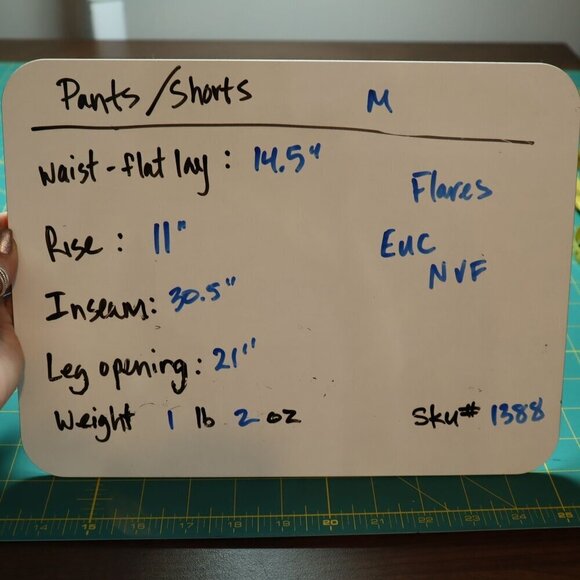 Pants/Shorts M
Waist-flat lay: 14.5"
Flares
Rise: 11"
EUC
NVF
Inseam: 30.5"
Leg opening: 21"
Weight 1 lb 2 oz
Sku# 1388
14 15 16 17 18 19 20 21 22 23 24 25